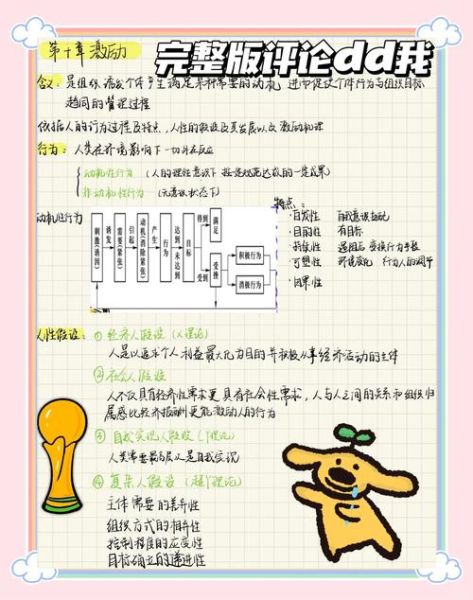 第十章 激励
完整版评论dd我
含义：是组织诱发个体产生满足某种需要的动机，进而促使个体行为与组织目标
趋同的管理过程
依据人的行为过程及特点，人性的假设及其发展以及激励机理
行为：人类在环境影响下一切外在反应
动机性行为（人的理性意识下
非动机性行为（无意识状态下）
特点：
·自发性 自我
·目的性 有目标
·持续性 变换行为手段
·可塑性 环境变化 行为人的调节
·因果性
动机性行为
刺激(诱因)
诱发
需要(紧张)
引起
动机(消除紧张)
产生
行为
达到
未达到
目标
得到
满足
受到
受挫
积极行为
消极行为
人性假设：①经济人假设（X理论）
人是以追求个人利益最大化为目的并积极从事经济活动的主体
②社会人假设
人不仅具有经济性需求更具有社会性需求，人与人之间的关系和组织归
属感比经济报酬更能激励人的行为
③自我实现人假设（Y理论）
人类需要最高层次是自我实现
④复杂人假设（超Y理论）
主体需要的差异性
组织方式的相异性
控制程度的应变性
目标确立的递进性